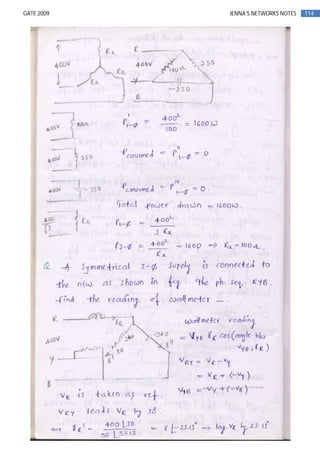 GATE 2009 JENNA'S NETWORKS NOTES 114
400V Rx Rx Rx
R 400V 100Ω j50 -j50 B
400V 100Ω P'1-ϕ = 400²/100 = 1600W
400V j50 Pconsumed = P''1-ϕ = 0
400V -j50 Pconsumed = P'''1-ϕ = 0.
Total power drawn = 1600W.
400/√3 Rx P1-ϕ = 400²/3Rx
P3-ϕ = 400²/Rx = 1600 ⇒ Rx = 100Ω.
Q. A Symmetrical 3-ϕ Supply is connected to
the n/w as shown in fig. The ph. seq. RYB.
find the reading of wattmeter —
R IR wattmeter reading
400V = VYB IR cos(angle b/w
VYB, IR)
Y
VRY = VR - VY
= VR + (-VY)
B
VR is taken as ref. VYB = VY + (-VB)
VRY leads VR by 30°.
⇒ IR' = 400∠30/50∠53.13 = 8∠-23.13° → lag VR by 23.13°.